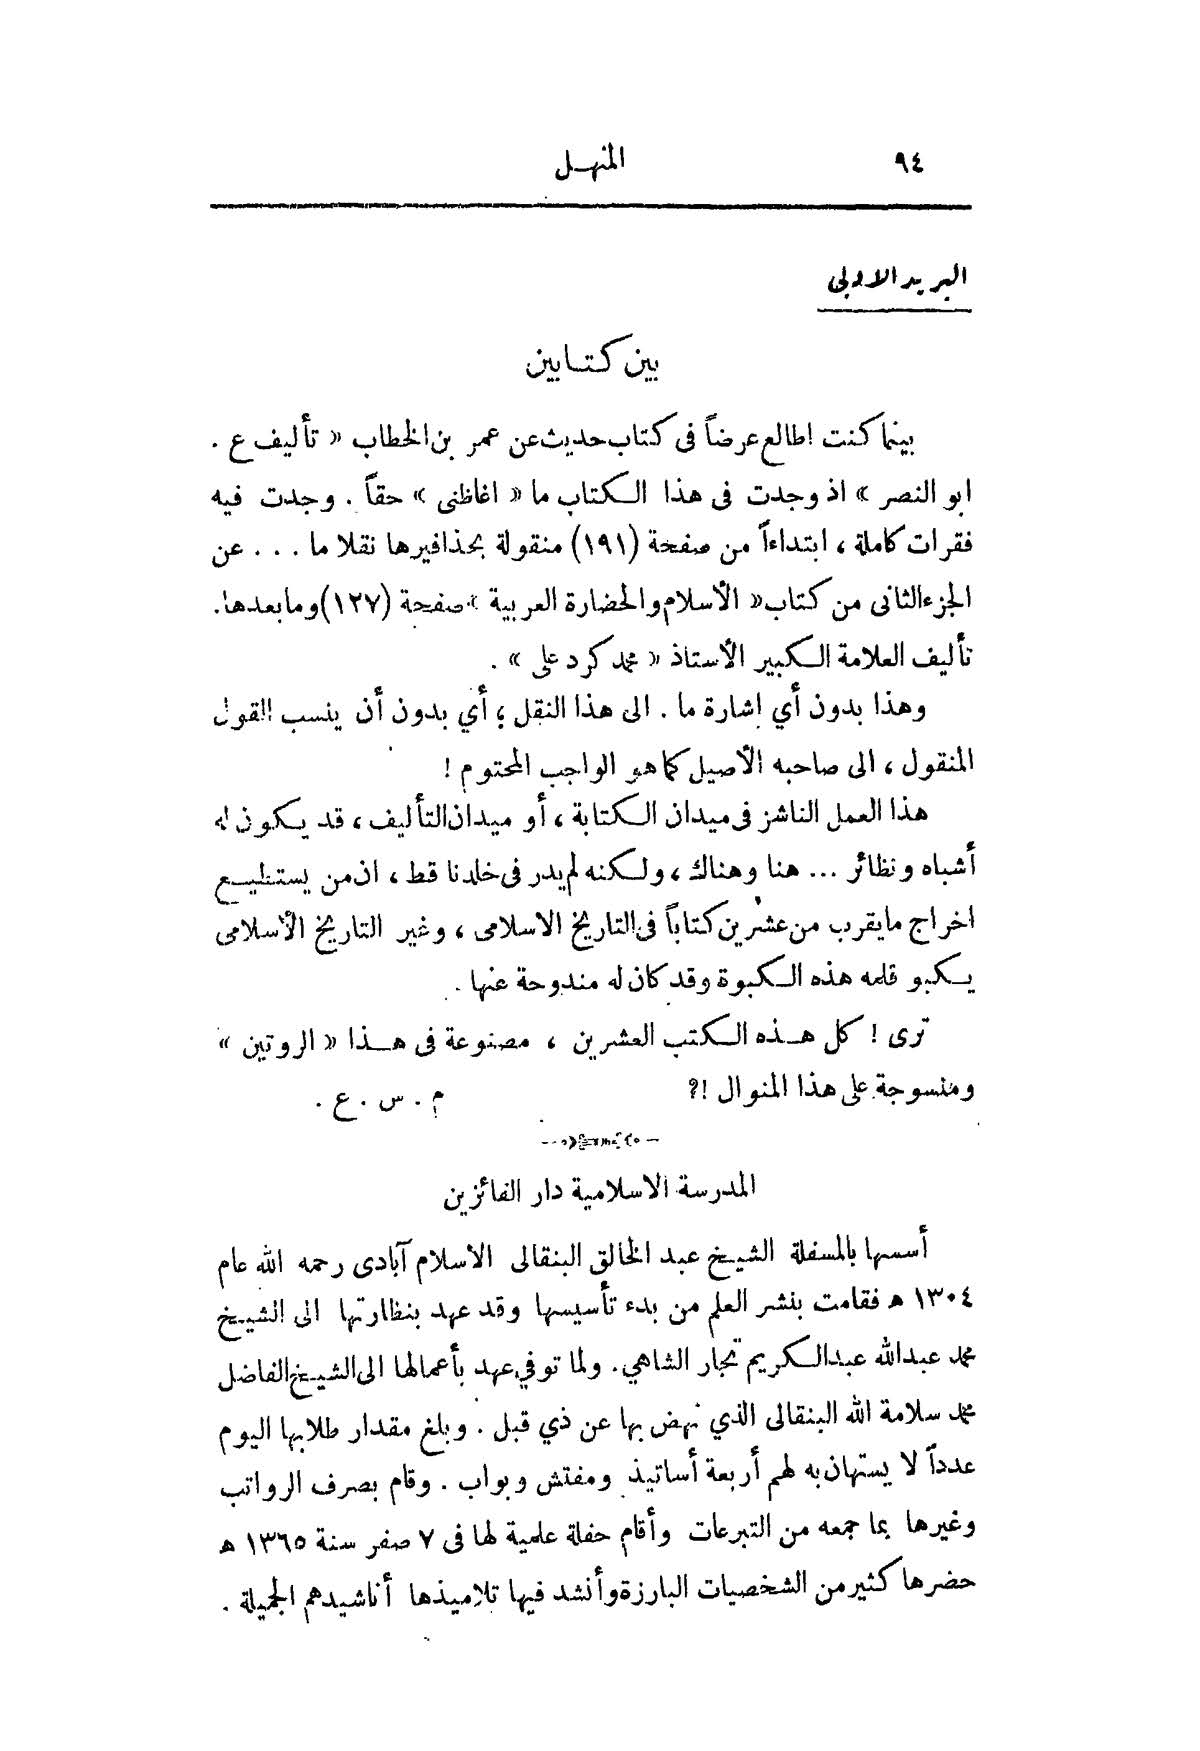 ٩٤
المنهل
البريد الادبى
بين كتابين
بينما كنت اطالع عرضاً فى كتاب حديث عن عمر بن الخطاب « تأليف ع .
ابو النصر » اذ وجدت فى هذا الكتاب ما « اغاظنى » حقاً . وجدت فيه
فقرات كاملة ، ابتداءاً من صفحة (١٩١) منقولة بحذافيرها نقلا ما . . . عن
الجزء الثانى من كتاب « الأسلام والحضارة العربية » صفحة (١٢٧) وما بعدها .
تأليف العلامة الكبير الأستاذ « محمد كرد على » .
وهذا بدون أي اشارة ما . الى هذا النقل ؛ أي بدون أن ينسب القول
المنقول ، الى صاحبه الأصيل كما هو الواجب المحتوم !
هذا العمل الناشز فى ميدان الكتابة ، أو ميدان التأليف ، قد يكون له
أشباه ونظائر ... هنا وهناك ، ولكنه لم يدر فى خلدنا قط ، ان من يستطيع
اخراج ما يقرب من عشرين كتاباً فى التاريخ الاسلامى ، وغير التاريخ الأسلامى
يكبو قلمه هذه الكبوة وقد كان له مندوحة عنها .
ترى ! كل هذه الكتب العشرين ، مصنوعة فى هذا « الروتين »
ومنسوجة على هذا المنوال !؟ م . س . ع .
المدرسة الاسلامية دار الفائزين
أسسها بالمسفلة الشيخ عبد الخالق البنقالى الاسلام آبادى رحمه الله عام
١٣٠٤ ه فقامت بنشر العلم من بدء تأسيسها وقد عهد بنظارتها الى الشيخ
محمد عبدالله عبدالكريم تجار الشاهي . ولما توفي عهد بأعمالها الى الشيخ الفاضل
محمد سلامة الله البنقالى الذي نهض بها عن ذي قبل . وبلغ مقدار طلابها اليوم
عدداً لا يستهان به لهم أربعة أساتيذ ومفتش وبواب . وقام بصرف الرواتب
وغيرها بما جمعه من التبرعات وأقام حفلة علمية لها فى ٧ صفر سنة ١٣٦٥ ه
حضرها كثير من الشخصيات البارزة وأنشد فيها تلاميذها أناشيدهم الجميلة .